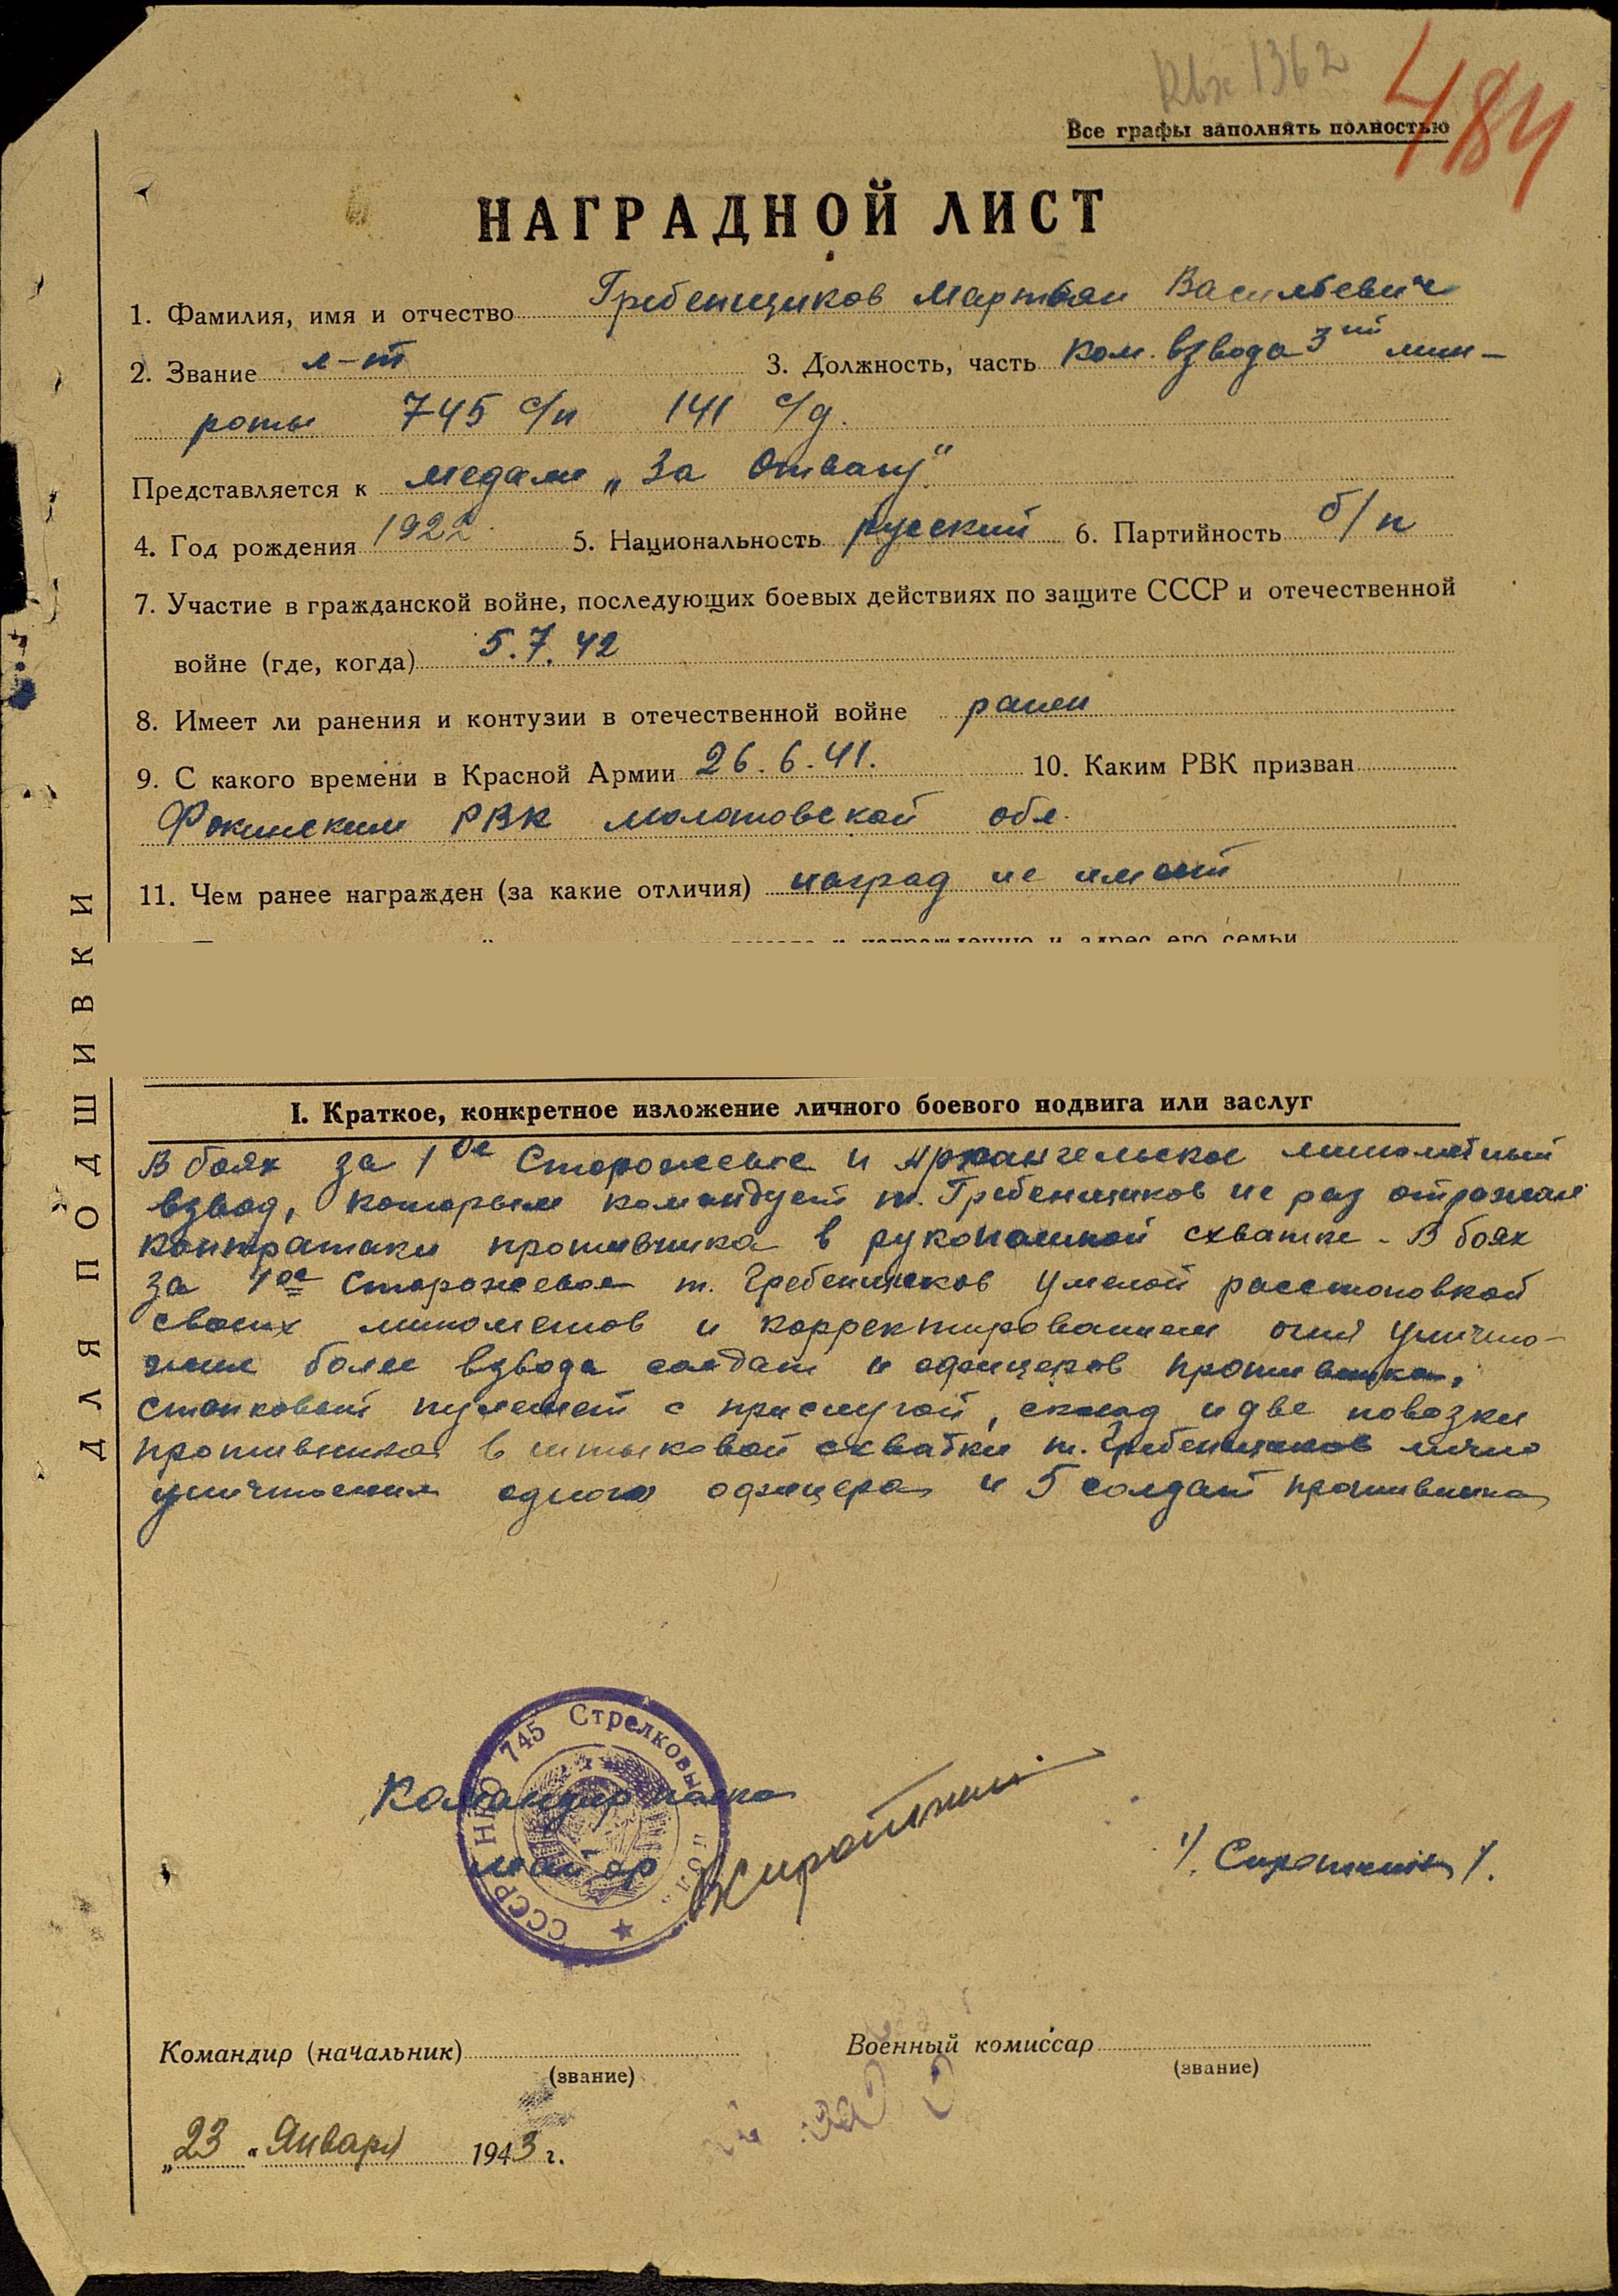 Вх 1362
484
Все графы заполнять полностью
НАГРАДНОЙ ЛИСТ
1. Фамилия, имя и отчество Гребенщиков Мартьян Васильевич
2. Звание л-т 3. Должность, часть ком. взвода 3ей мин-
роты 745 с/п 141 с/д.
Представляется к медали „За Отвагу"
4. Год рождения 1922 5. Национальность русский 6. Партийность б/п
7. Участие в гражданской войне, последующих боевых действиях по защите СССР и отечественной
войне (где, когда) 5.7.42
8. Имеет ли ранения и контузии в отечественной войне ранен
9. С какого времени в Красной Армии 26.6.41. 10. Каким РВК призван
Фокинским РВК молотовской обл.
11. Чем ранее награжден (за какие отличия) наград не имеет
к награждению и адрес его семьи
ДЛЯ ПОДШИВКИ
I. Краткое, конкретное изложение личного боевого подвига или заслуг
В боях за 1ое Сторожевое и Архангельское минометный
взвод, которым командует т. Гребенщиков не раз отражал
контратаки противника в рукопашной схватке. В боях
за 1ое Сторожевое т. Гребенщиков умелой расстановкой
своих минометов и корректированием огня уничто-
жил более взвода солдат и офицеров противника,
станковый пулемет с прислугой, склад и две повозки
противника в штыковой схватки т. Гребенщиков лично
уничтожил одного офицера и 5 солдат противника
СССР НКО 745 Стрелковый полк
Командир полка
майор
/. Сироткин /.
Командир (начальник)
(звание)
Военный комиссар
(звание)
„23" Января 1943 г.